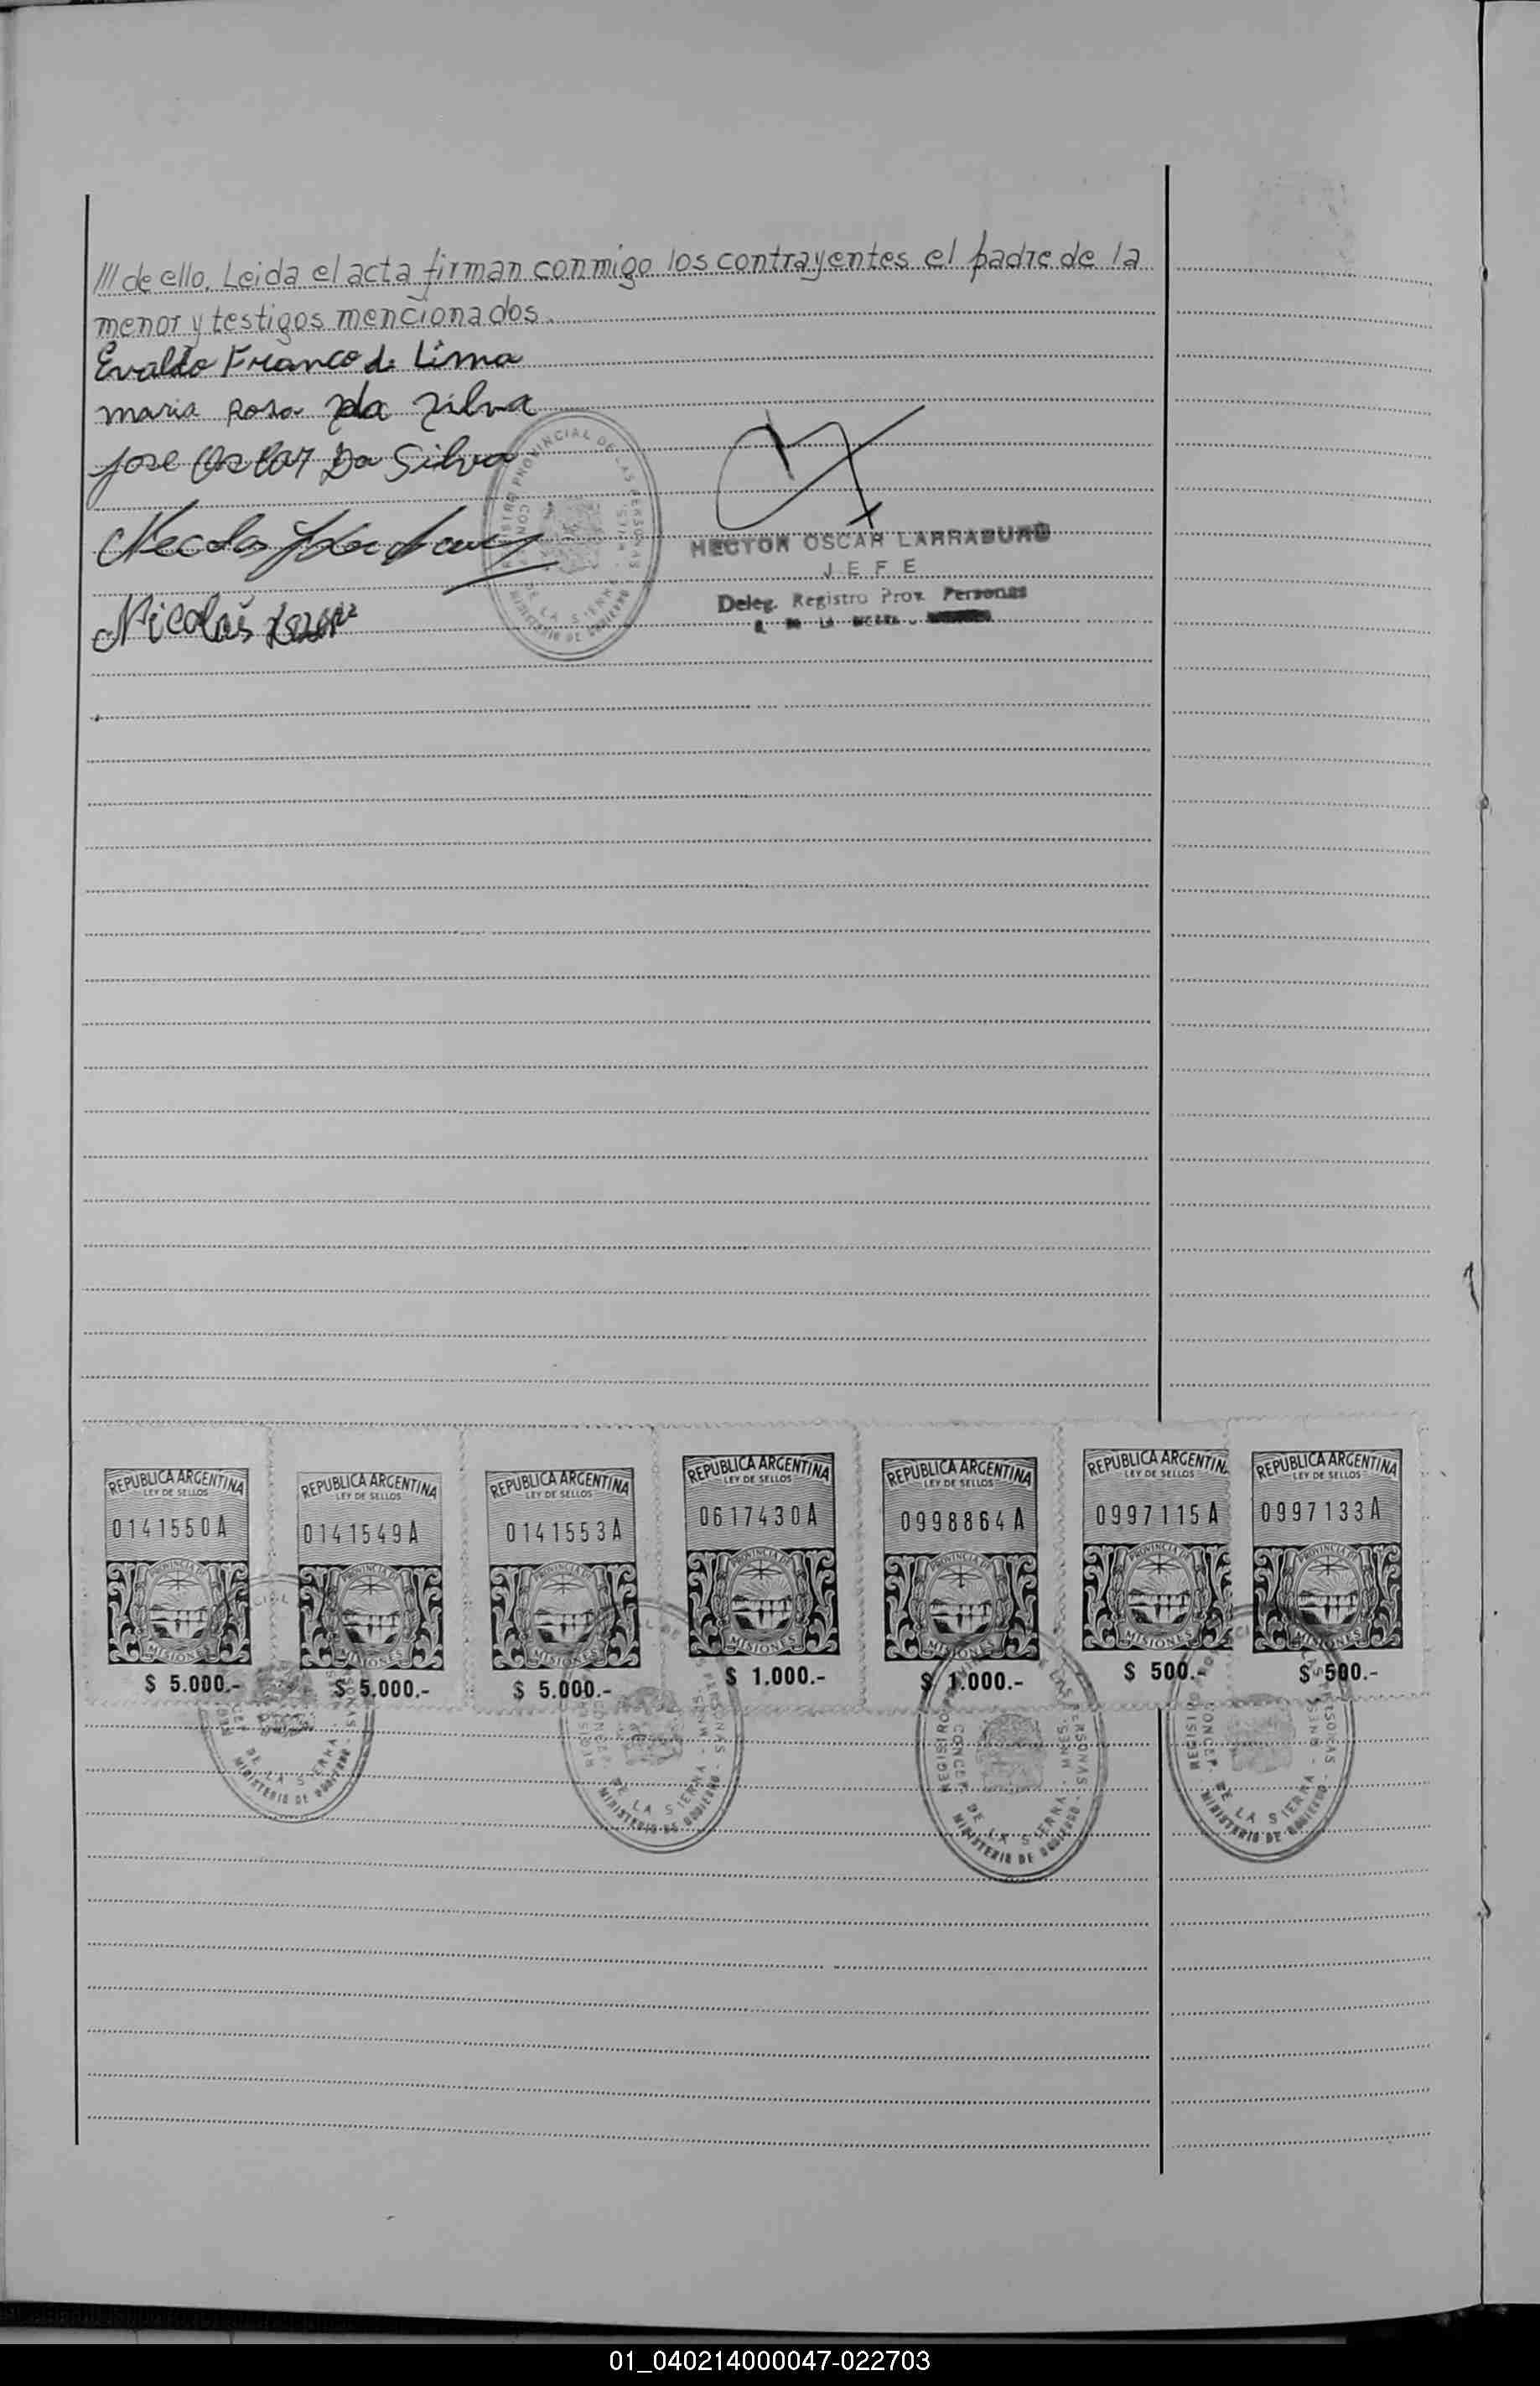 /// de ello. Leida el acta firman conmigo los contrayentes el padre de la
menor y testigos mencionados.
Evaldo Franco de Lima
maria Rosa da silva
Jose Oscar Da Silva
Nicolás
HECTOR OSCAR LARRABURU
JEFE
Deleg. Registro Prov. Personas
DE LA SIERRA
REGISTRO PROVINCIAL DE LAS PERSONAS
DE LA SIERRA
MINISTERIO DE GOBIERNO
REPUBLICA ARGENTINA
LEY DE SELLOS
0141550A
PROVINCIA DE
MISIONES
$ 5.000.-
REPUBLICA ARGENTINA
LEY DE SELLOS
0141549A
PROVINCIA DE
MISIONES
$ 5.000.-
REPUBLICA ARGENTINA
LEY DE SELLOS
0141553A
PROVINCIA DE
MISIONES
$ 5.000.-
REPUBLICA ARGENTINA
LEY DE SELLOS
0617430A
PROVINCIA DE
MISIONES
$ 1.000.-
REPUBLICA ARGENTINA
LEY DE SELLOS
0998864A
PROVINCIA DE
MISIONES
$ 1.000.-
REPUBLICA ARGENTINA
LEY DE SELLOS
0997115A
PROVINCIA DE
MISIONES
$ 500.-
REPUBLICA ARGENTINA
LEY DE SELLOS
0997133A
PROVINCIA DE
MISIONES
$ 500.-
DE LA SIERRA
MINISTERIO DE GOBIERNO
DE LA SIERRA
MINISTERIO DE GOBIERNO
DE LA SIERRA
MINISTERIO DE GOBIERNO
DE LA SIERRA
MINISTERIO DE GOBIERNO
01_040214000047-022703